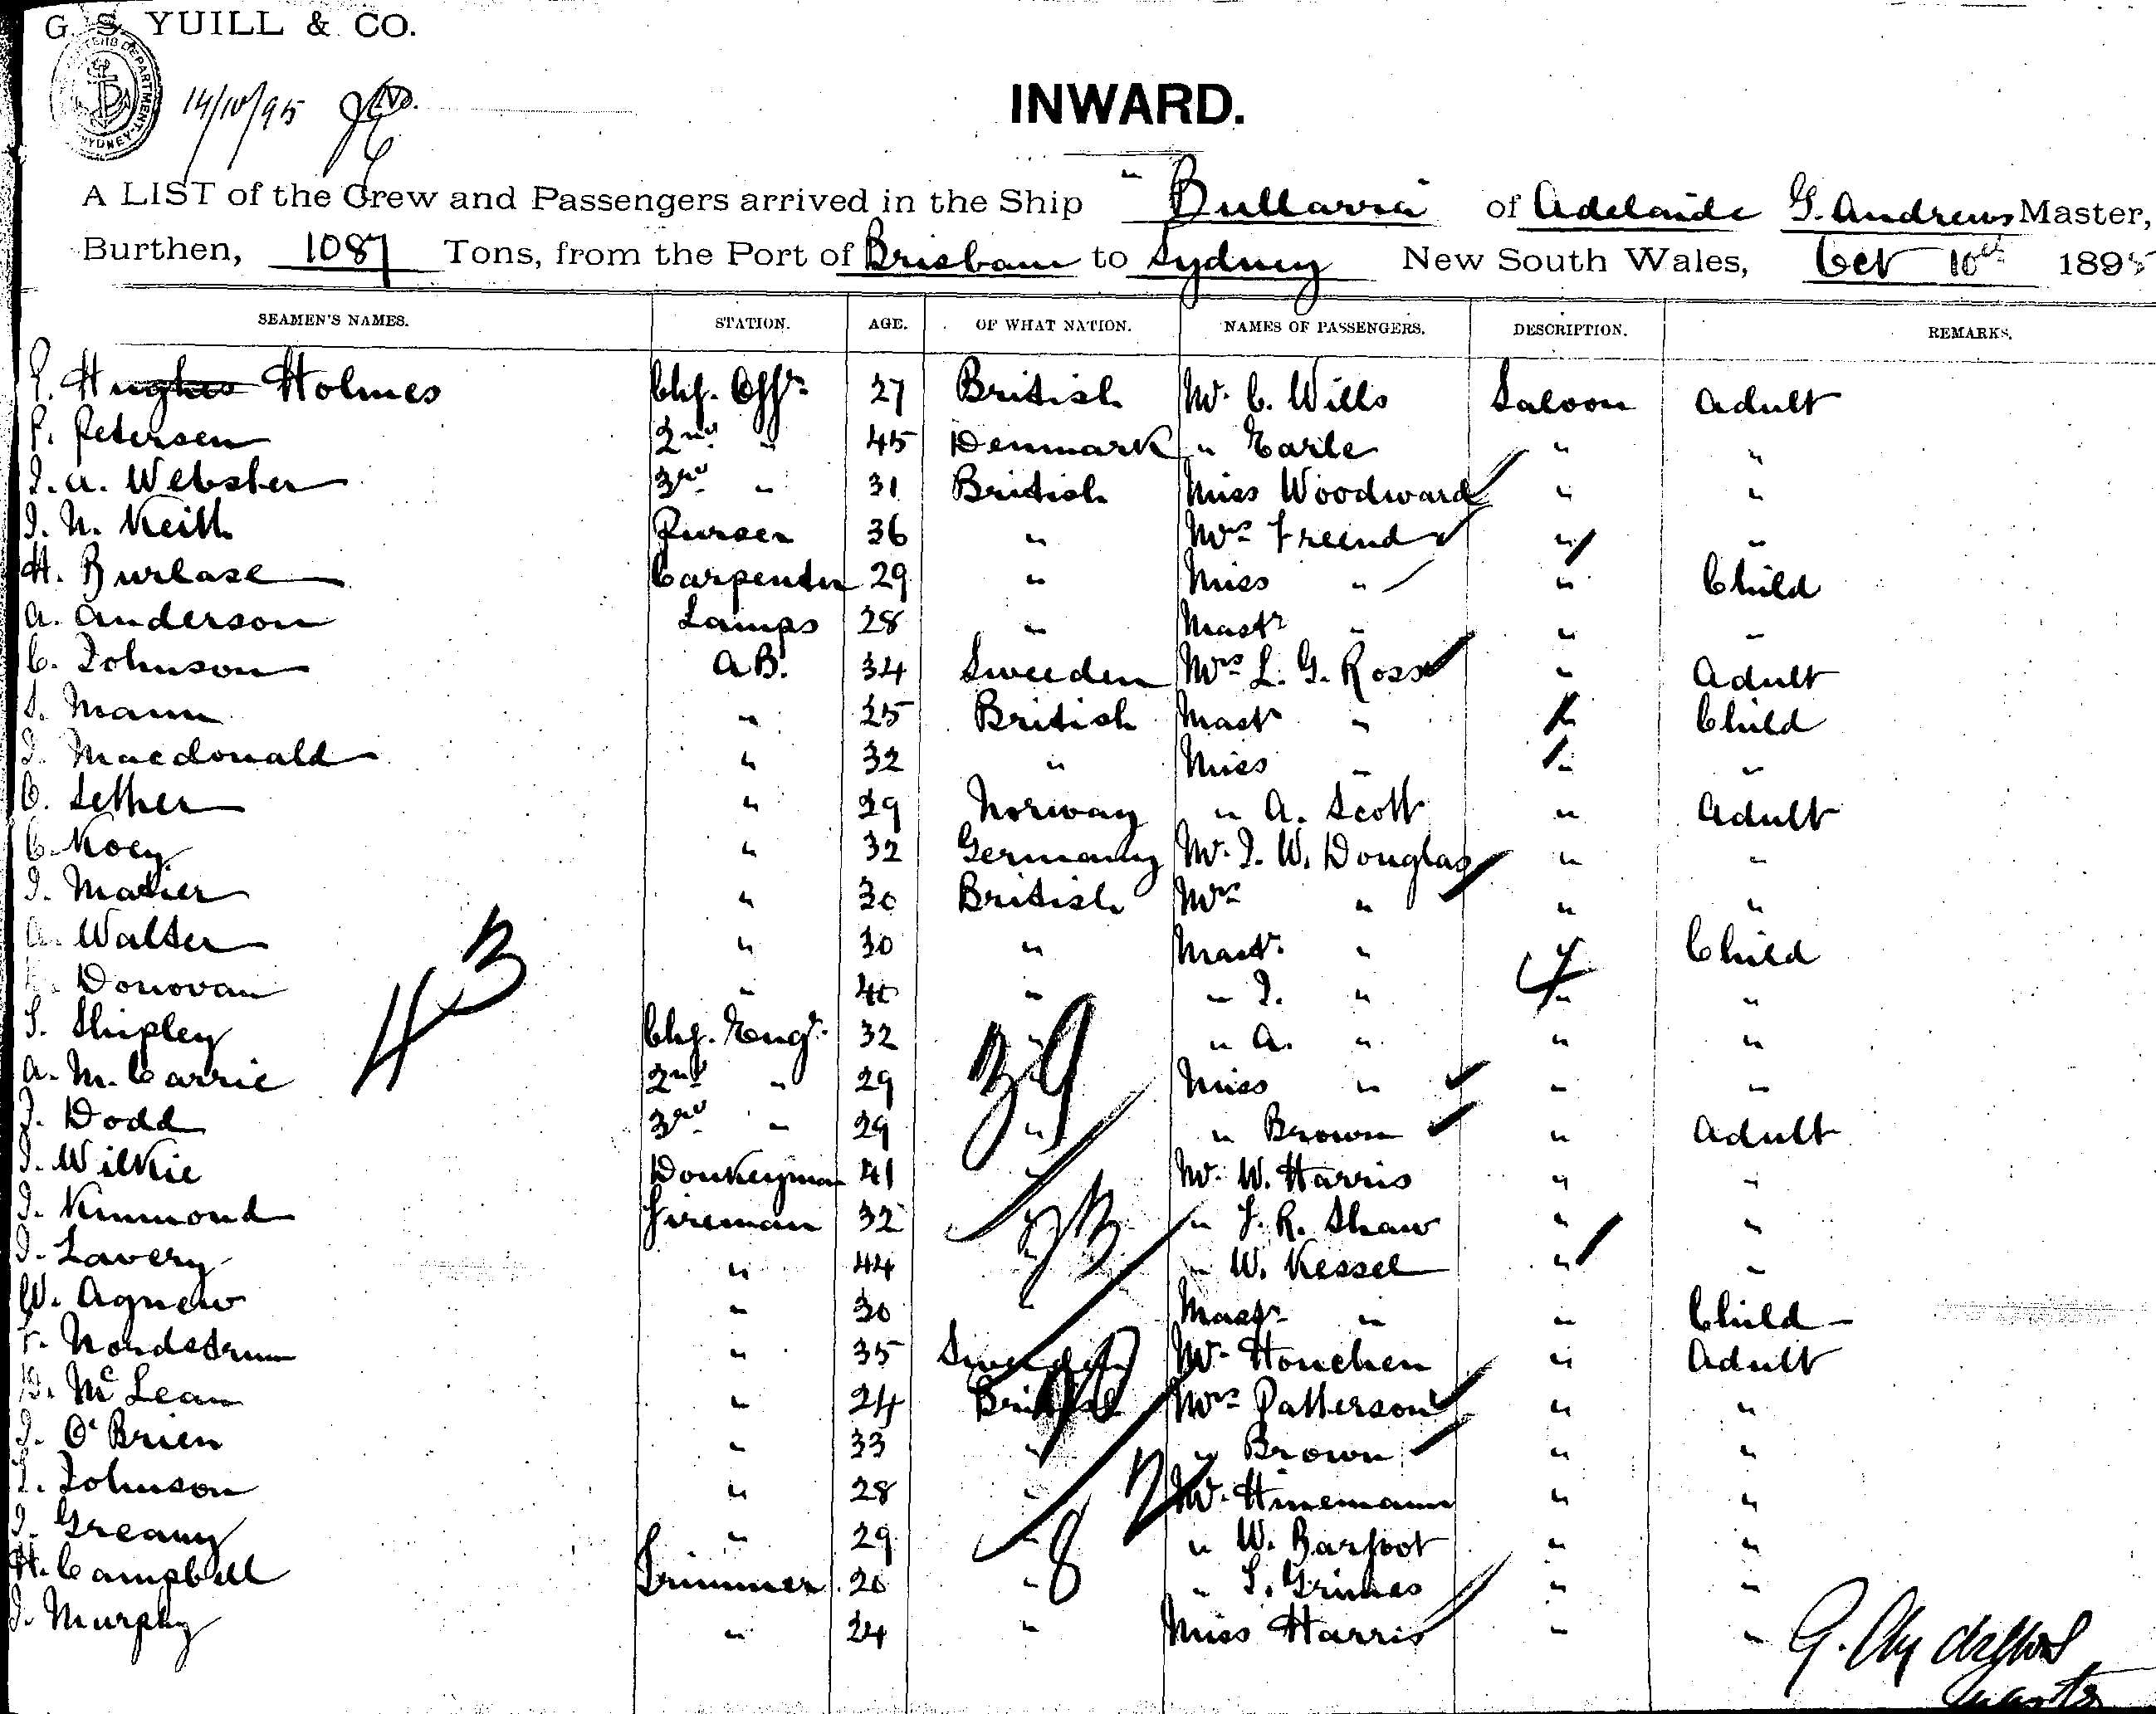 G. S. YUILL & CO.
14/10/95
INWARD.
A LIST of the Crew and Passengers arrived in the Ship " Bullarra " of Adelaide G. Andrews Master,
Burthen, 1087 Tons, from the Port of Brisbane to Sydney New South Wales, Oct 10th 1895
SEAMEN'S NAMES. STATION. AGE. OF WHAT NATION. NAMES OF PASSENGERS. DESCRIPTION. REMARKS.
P. Hughes Holmes Chf. Offr. 27 British Mr. C. Wills Saloon Adult
P. Petersen 2nd " 45 Denmark " Earle " "
J. A. Webster 3rd " 31 British Miss Woodward " "
J. N. Keith Purser 36 " Mrs Freend " "
H. Burlase Carpenter 29 " Miss " " Child
A. Anderson Lamps 28 " Mastr " " "
C. Johnson A.B. 34 Sweeden Mrs L. G. Ross " Adult
S. Mann " 25 British Mastr " " Child
J. Macdonald " 32 " Miss " " "
C. Sether " 29 Norway " A. Scott " Adult
C. Koey " 32 Germany Mr. J. W. Douglas " "
J. Matier " 30 British Mrs " " "
A. Walter " 30 " Mastr. " " Child
Donovan " 40 " " J. " " "
S. Shipley Chf. Engr. 32 " " A. " " "
A. McCarrie 2nd " 29 " Miss " " "
J. Dodd 3rd " 29 " " Brown " Adult
J. Wilkie Donkeyman 41 " Mr. W. Harris " "
J. Kinmond Fireman 32 " " J. R. Shaw " "
J. Lavery " 44 " " W. Kessel " "
W. Agnew " 30 " Mastr " " Child
F. Nordstrum " 35 Sweeden Mr. Honchen " Adult
D. McLean " 24 British Mrs Patterson " "
J. O'Brien " 33 " " Brown " "
J. Johnson " 28 " Mr. Hinemann " "
J. Greany " 29 " " W. Barfoot " "
H. Campbell Trimmer 20 " " S. Grimes " "
J. Murphy " 24 " Miss Harris " "
43
39
G. Andrews
Master